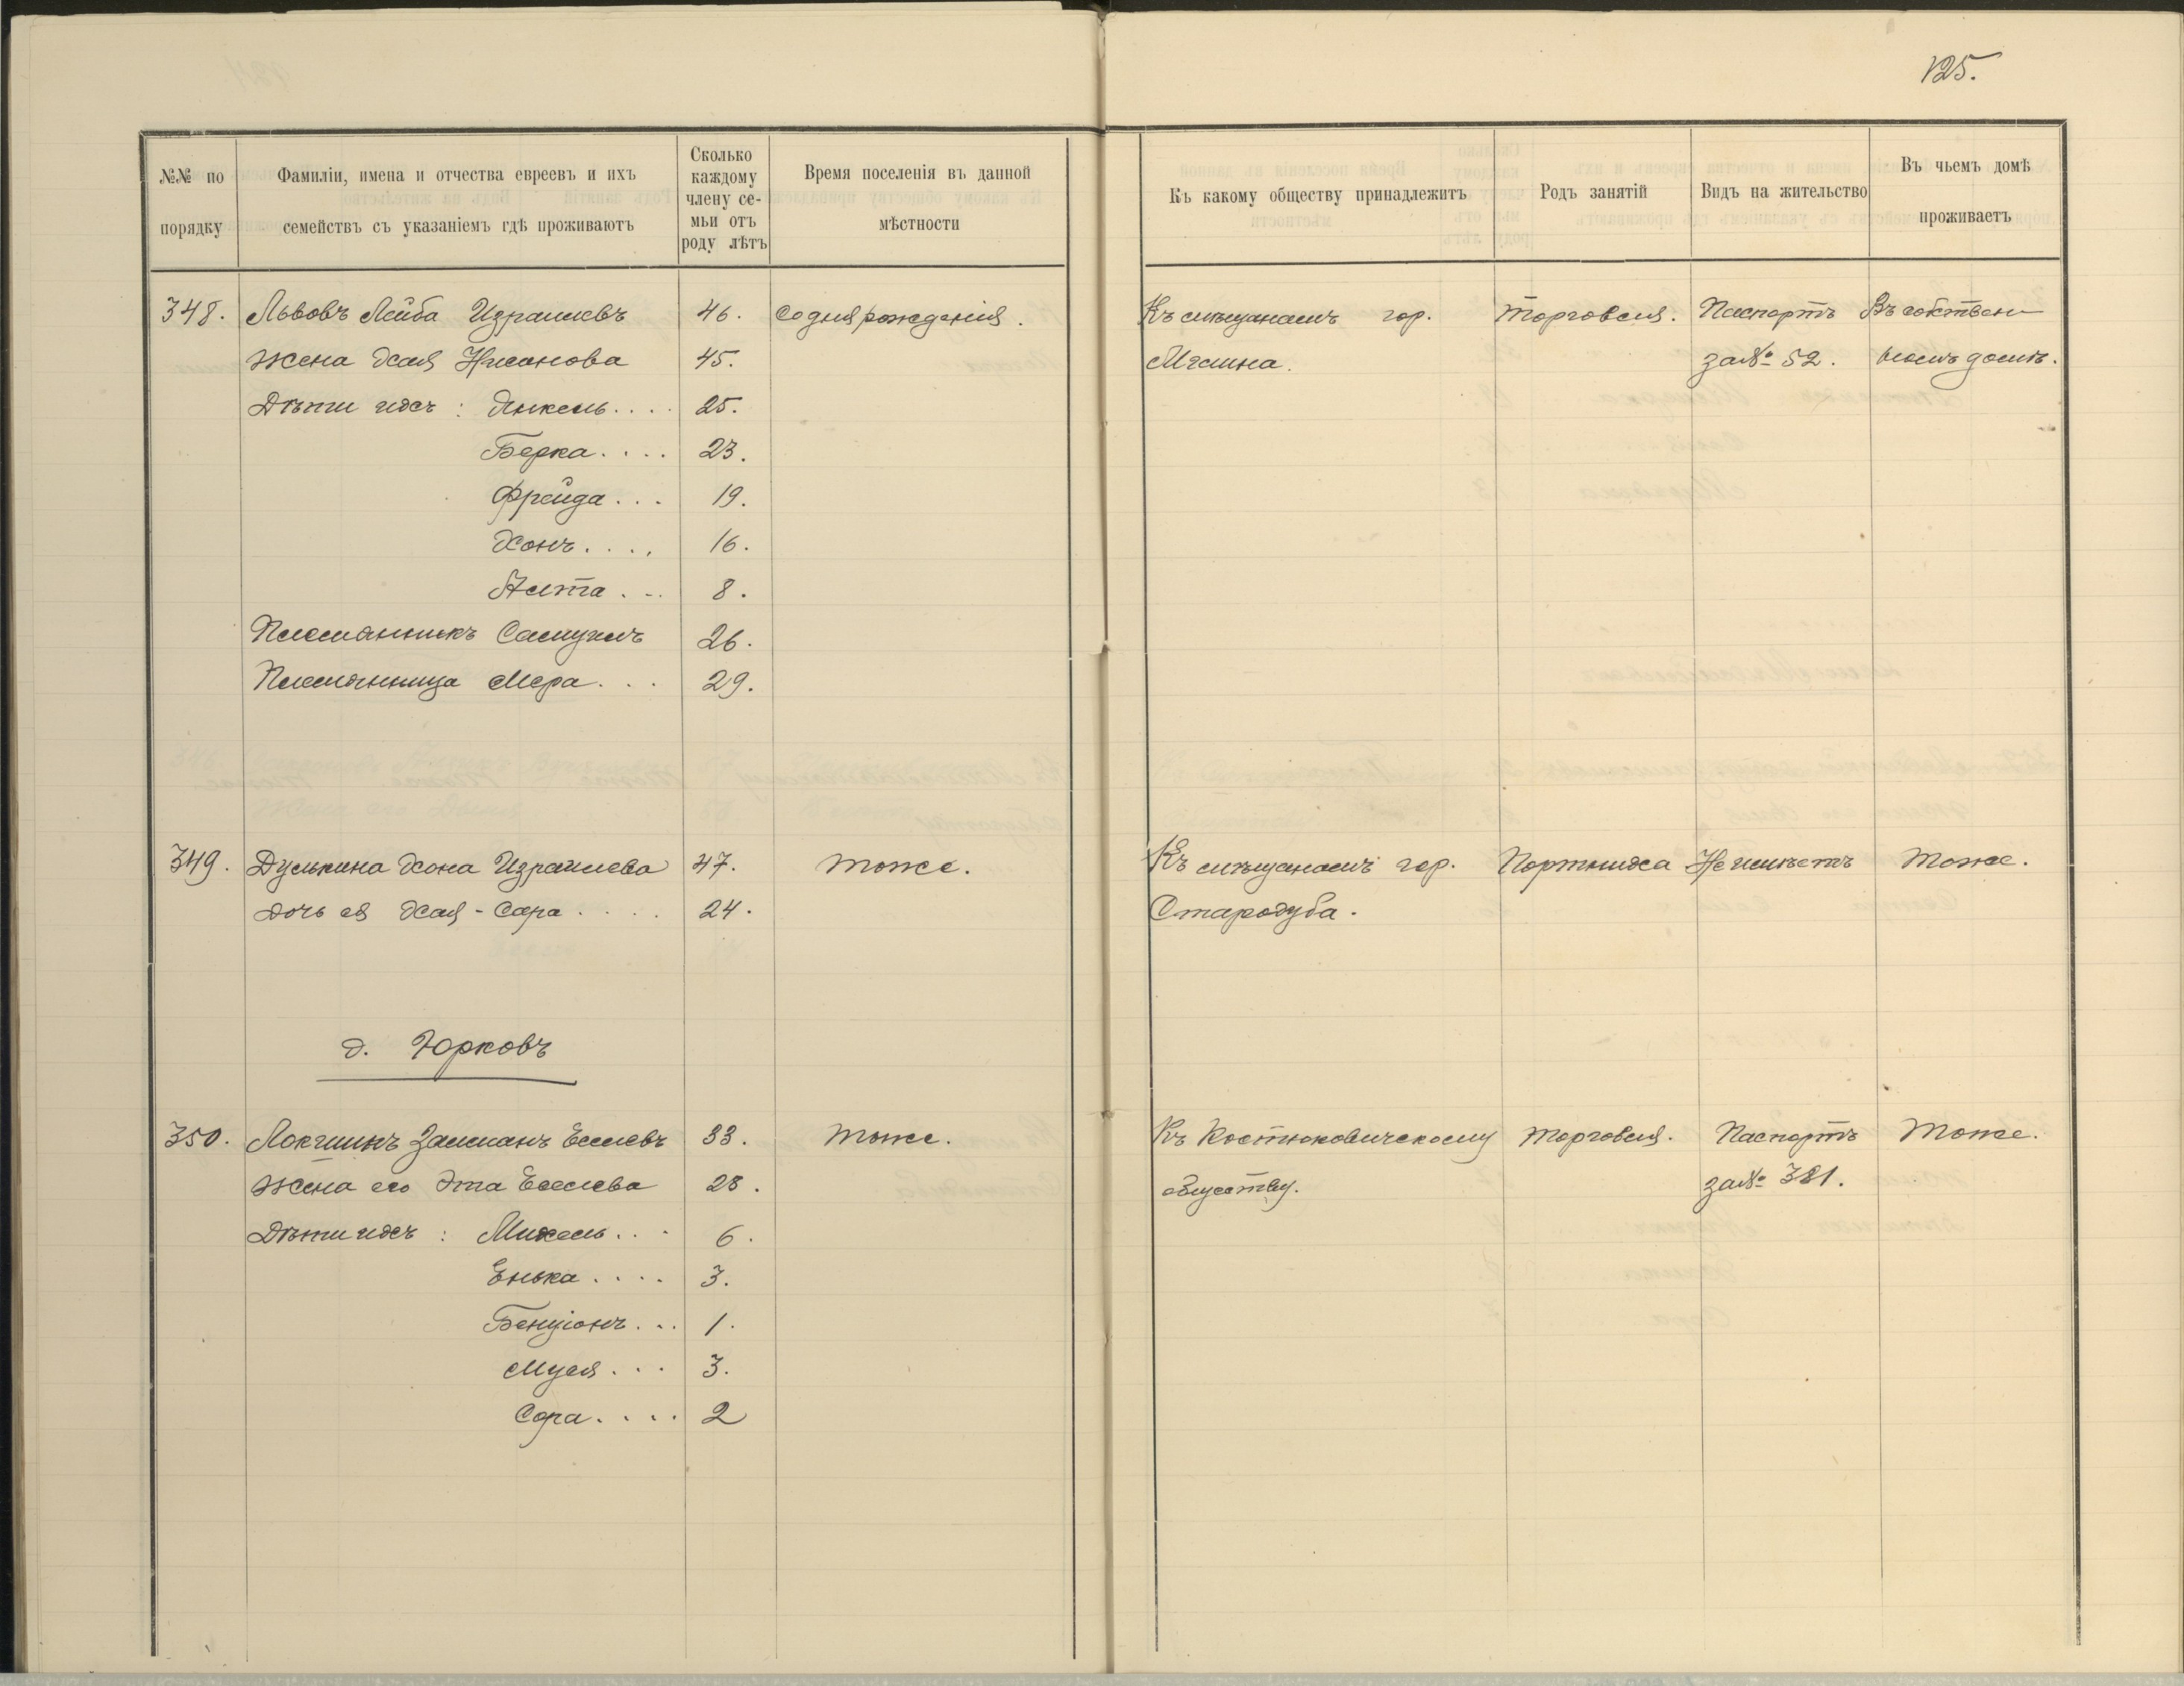 125.
№№ по порядку
Фамиліи, имена и отчества евреевъ и ихъ
семействъ съ указаніемъ гдѣ проживаютъ
Сколько
каждому
члену се-
мьи отъ
роду лѣтъ
Время поселенія въ данной
мѣстности
Къ какому обществу принадлежитъ
Родъ занятій
Видъ на жительство
Въ чьемъ домѣ
проживаетъ
348. Львовъ Лейба Израилевъ 46. Со дня рожденія. Къ мѣщанамъ гор. Торговля. Паспортъ Въ собствен-
Жена Хая Нисанова 45. Мглина. за № 52. номъ домѣ.
Дѣти ихъ: Янкель.... 25.
Берка.... 23.
Фрейда... 19.
Хонъ.... 16.
Алта... 8.
Племянникъ Самуилъ 26.
Племянница Мера... 29.
349. Дулькина Хона Израилева 47. Тоже. Къ мѣщанамъ гор. Портниха Не имѣетъ Тоже.
Дочь ея Хая-Сара.... 24. Стародуба.
д. Юрковъ
350. Локшинъ Залманъ Еселевъ 33. Тоже. Къ Костюковичскому Торговля. Паспортъ Тоже.
Жена его Эта Евсеева 28. обществу. за № 381.
Дѣти ихъ: Михель... 6.
Енька.... 3.
Бенціонъ... 1.
Муся... 3.
Сора.... 2